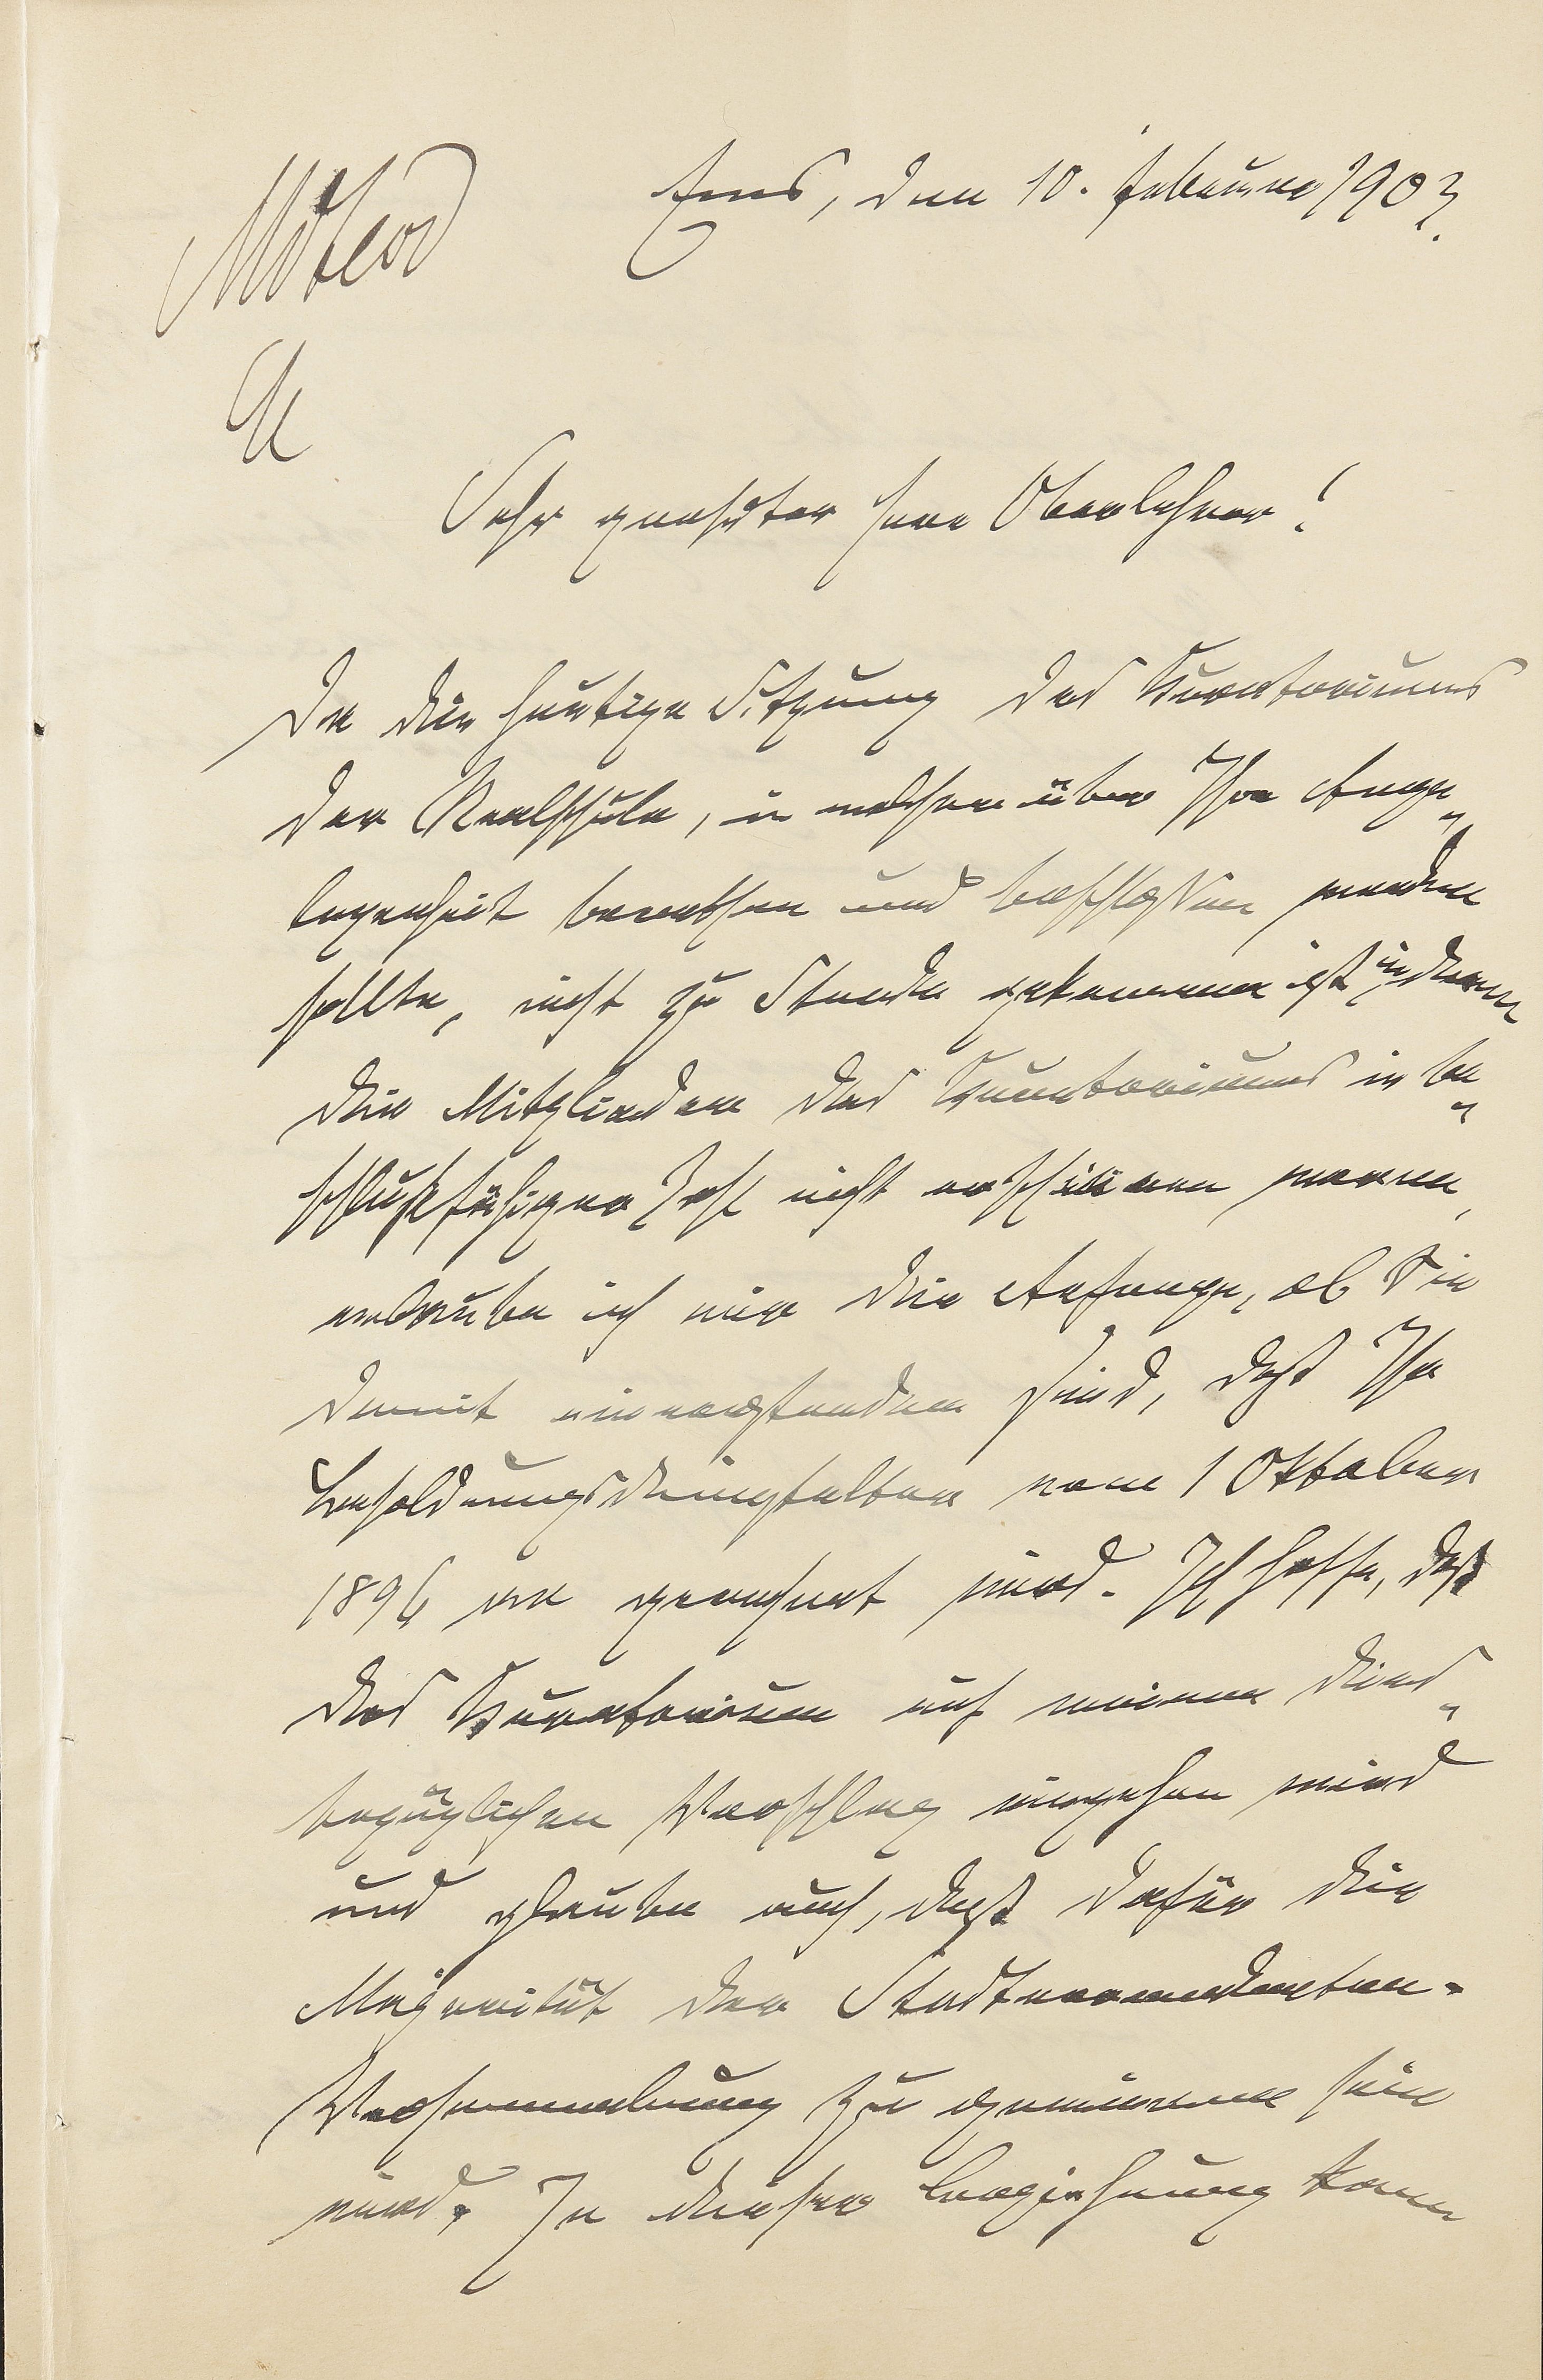 Ems, den 10. Februar 1903.
Sehr geehrter Herr Oberlehrer!
Da die heutige Sitzung des Kuratoriums
der Realschule, in welcher über Ihre Ange-
legenheit berathen und beschlossen werden
sollte, nicht zu Stande gekommen ist, indem
die Mitglieder des Kuratoriums in be-
schlußfähiger Zahl nicht erschienen waren,
erlaube ich mir die Anfrage, ob Sie
damit einverstanden sind, daß Ihr
Besoldungsdienstalter vom 1 Oktober
1896 an gerechnet wird. Ich hoffe, daß
das Kuratorium auf meinen dies-
bezüglichen Vorschlag eingehen wird
und glaube auch, daß dafür die
Majorität der Stadtverordneten-
Versammlung zu gewinnen sein
wird. In dieser Beziehung kann